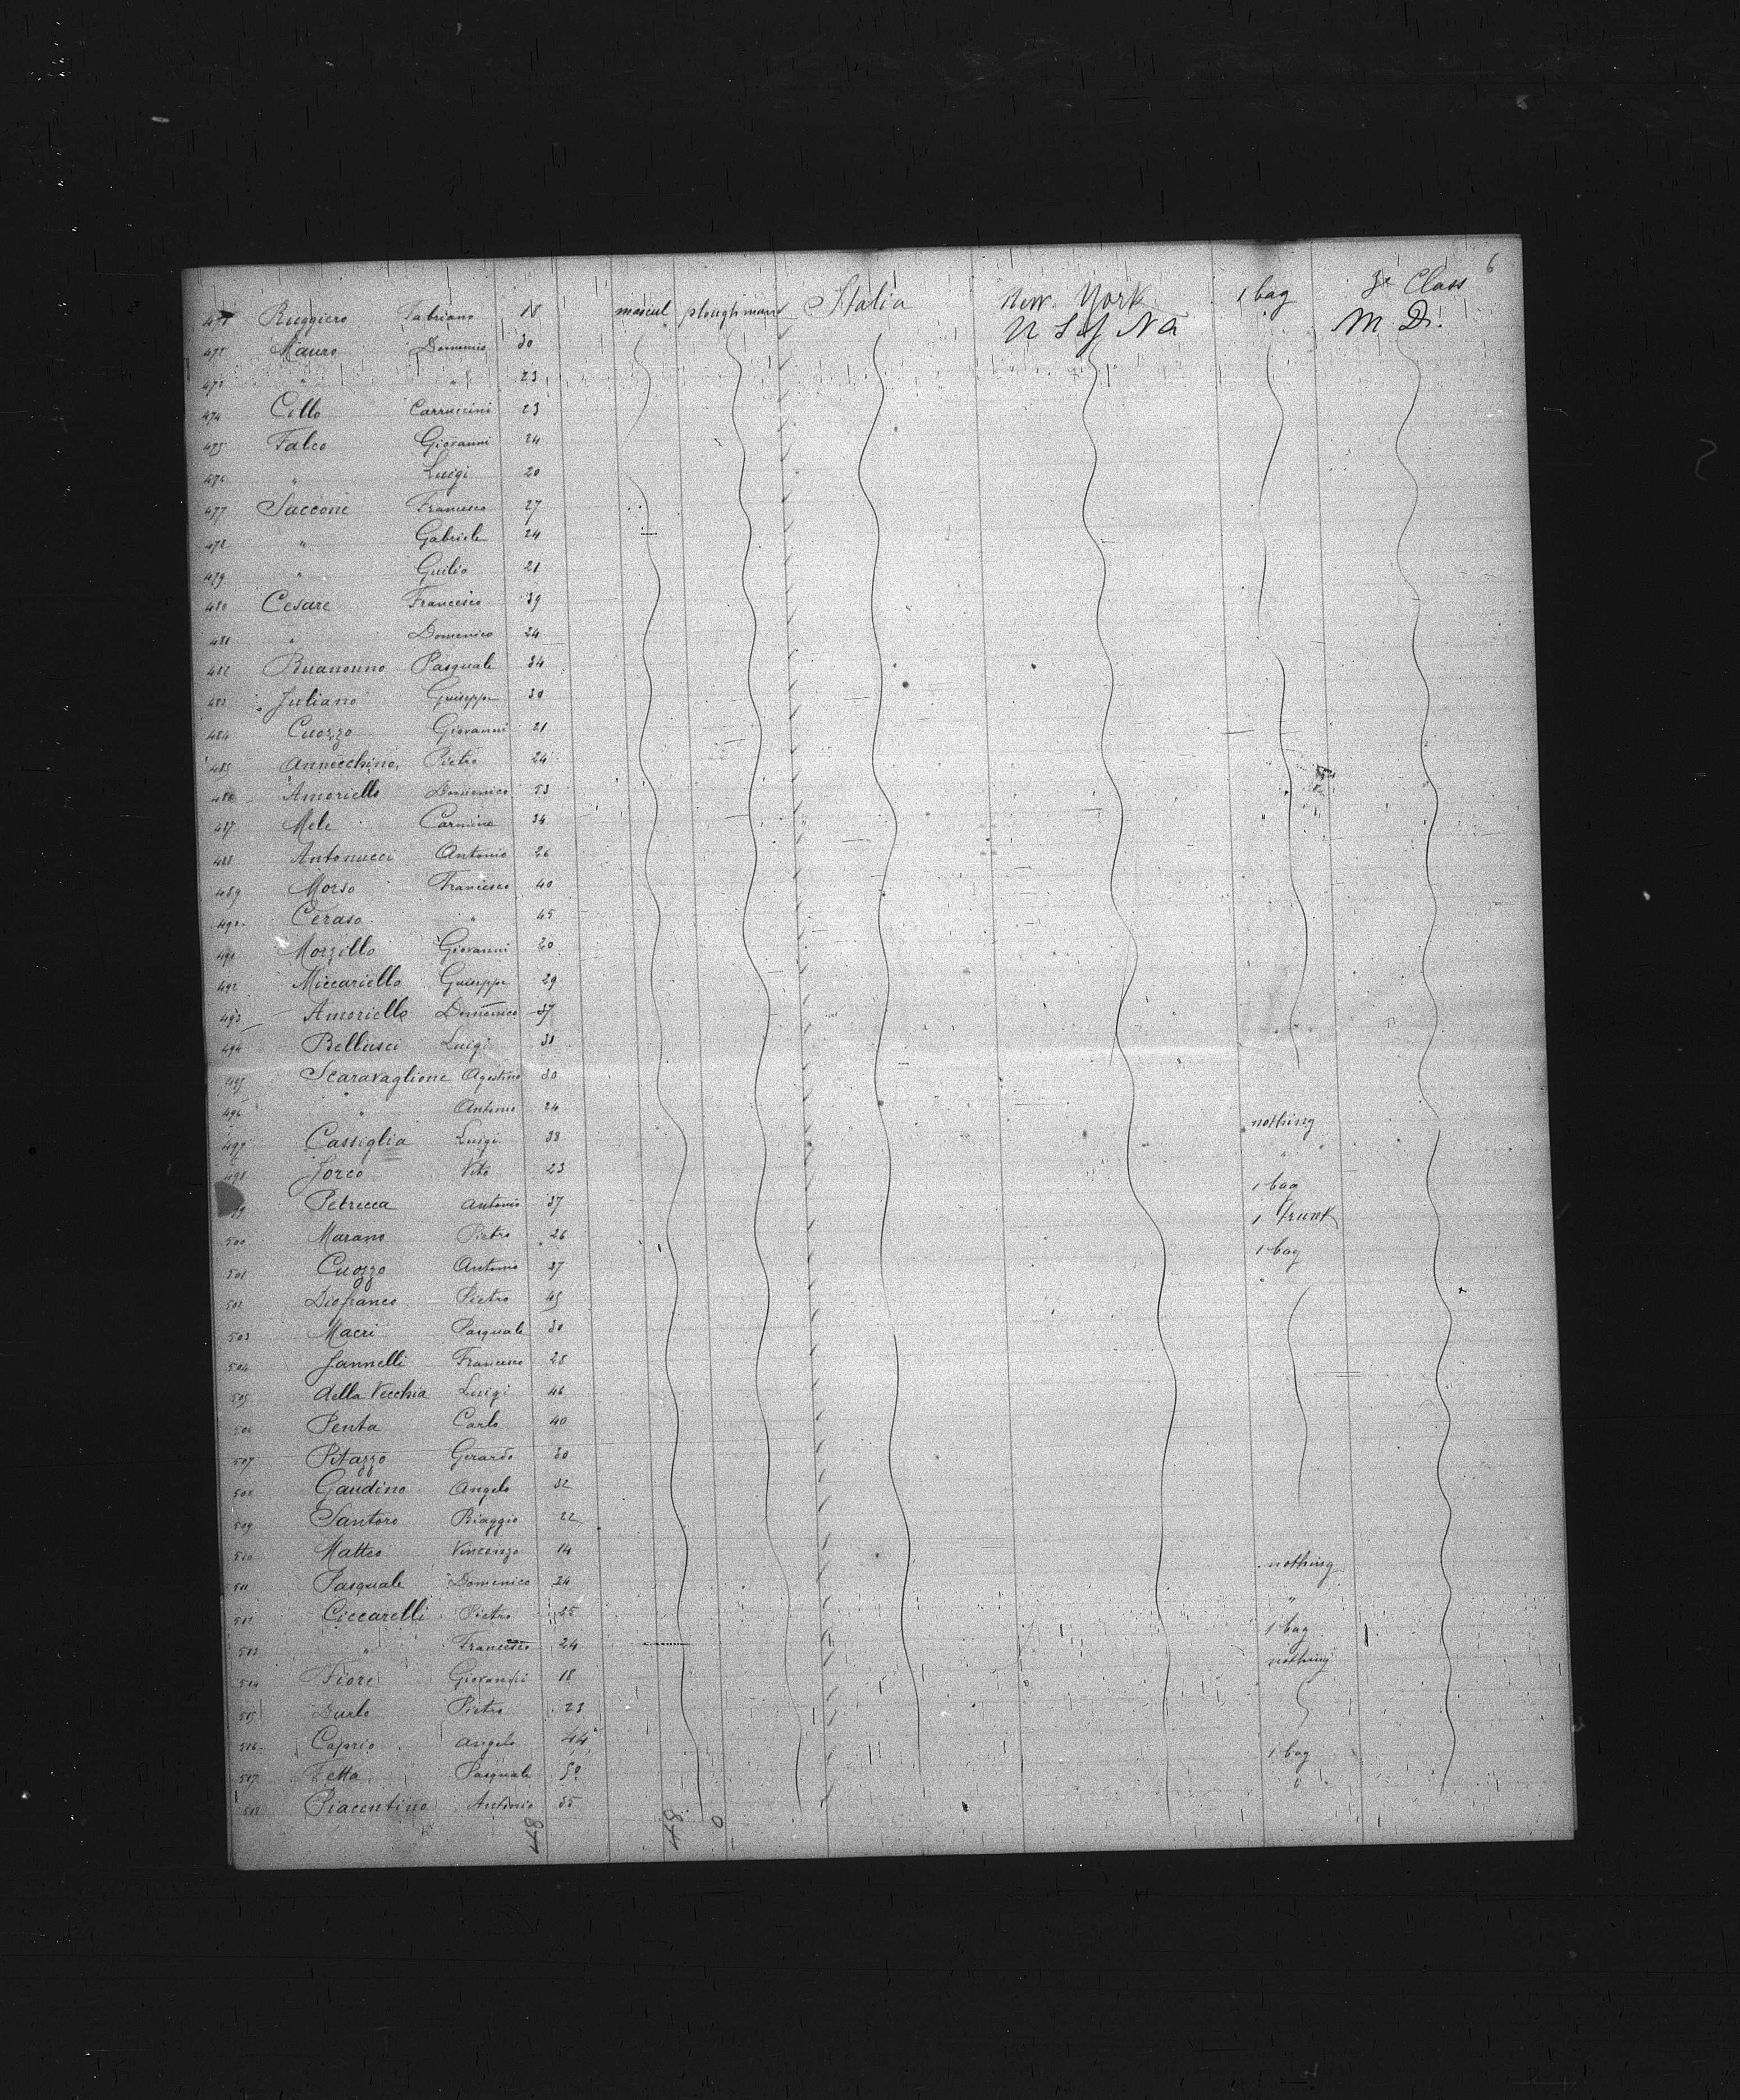 6
471 Ruggiero Fabriano 18 mascul ploughman Italia New. York 1 bag 3e Class
U S of Na M D.
472 Mauro Domenico 30
473 " " 23
474 Cello Carruccini 23
475 Falco Giovanni 24
476 " Luigi 20
477 Saccone Francesco 27
478 " Gabriele 24
479 " Guilio 21
480 Cesare Francesco 39
481 " Domenico 24
482 Buanonno Pasquale 34
483 Juliano Guiseppe 30
484 Cuozzo Giovanni 21
485 Annecchino Pietro 24
486 Amoriello Domenico 53
487 Mele Carmine 34
488 Antonucci Antonio 26
489 Morso Francesco 40
490 Ceraso " 45
491 Morzillo Giovanni 20
492 Miccariello Guiseppe 29
493 Amoriello Domenico 37
494 Bellusci Luigi 31
495 Scaravaglione Agostino 30
496 " Antonio 24
497 Cassiglia Luigi 38 nothing
498 Jorco Vito 23 "
Petrecca Antonio 37 1 bag
500 Marano Pietro 26 1 trunk
501 Cuozzo Antonio 37 1 bag
502 Diofranco Pietro 45
503 Macri Pasquale 30
504 Jannelli Francesco 28
505 della Vecchia Luigi 46
506 Penta Carlo 40
507 Pitazzo Gerardo 30
508 Gaudino Angelo 32
509 Santoro Biaggio 22
510 Matteo Vincenzo 14 nothing
511 Pasquale Domenico 24 "
512 Ciccarelli Pietro 25 1 bag
513 " Francesco 24 nothing
514 Fiore Giovanni 18
515 Durlo Pietro 23
516 Caprio Angelo 44 1 bag
517 Fetta Pasquale 50 "
518 Piacentino Antonio 35
48 48 0